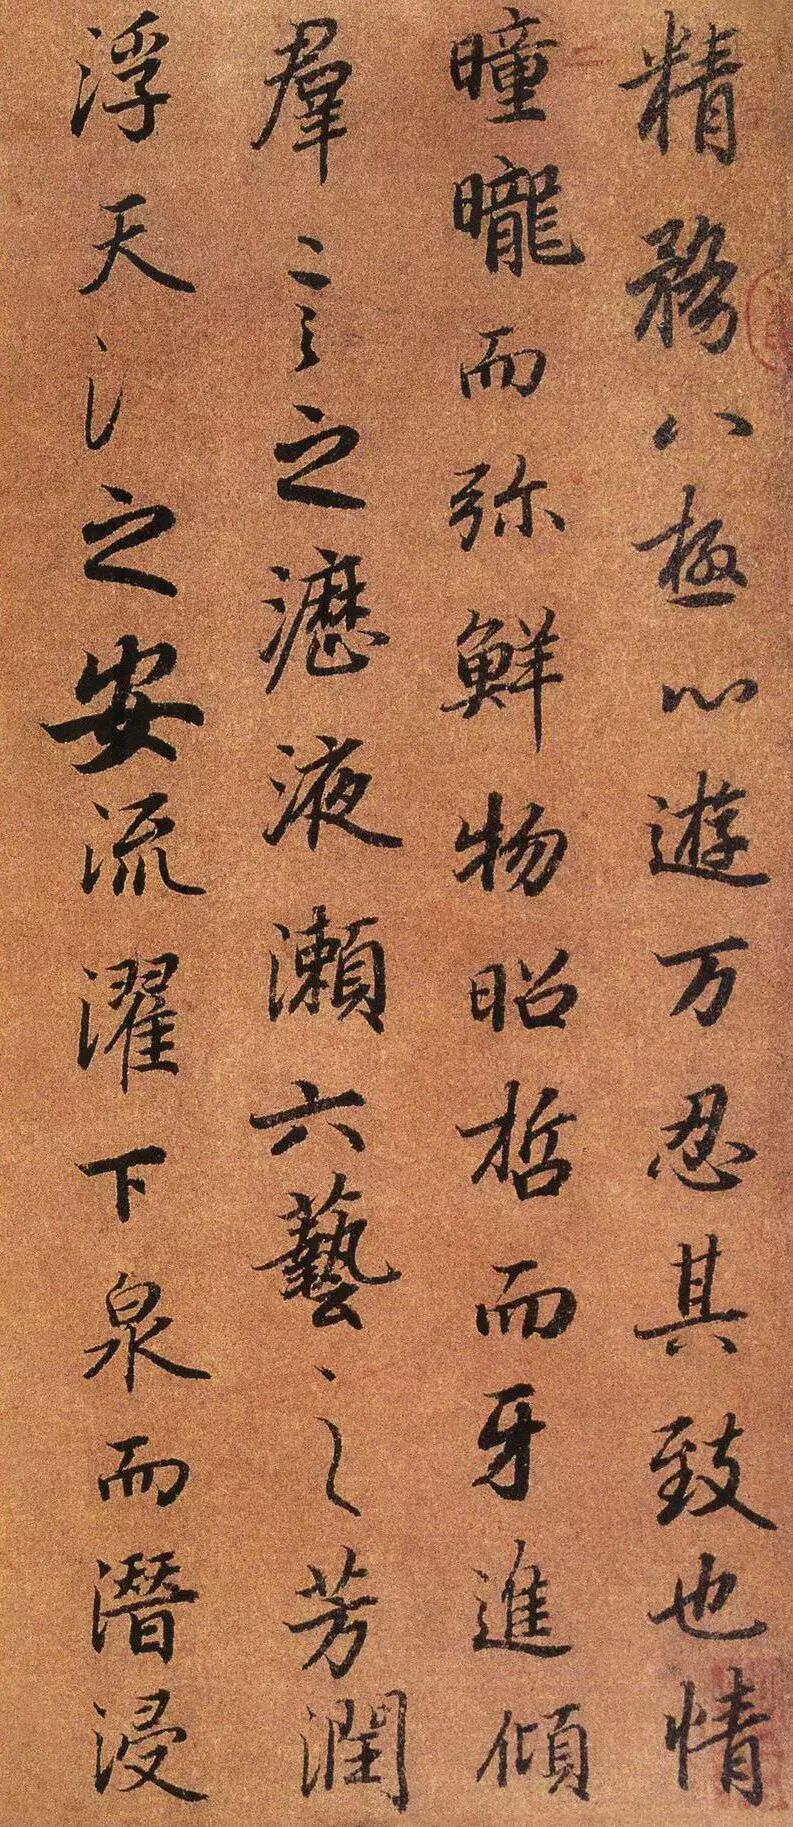 精務八極心遊万忍其致也情
曈曨而弥鮮物昭晢而牙進傾
羣言之瀝液瀨六藝之芳潤
浮天之安流濯下泉而潛浸